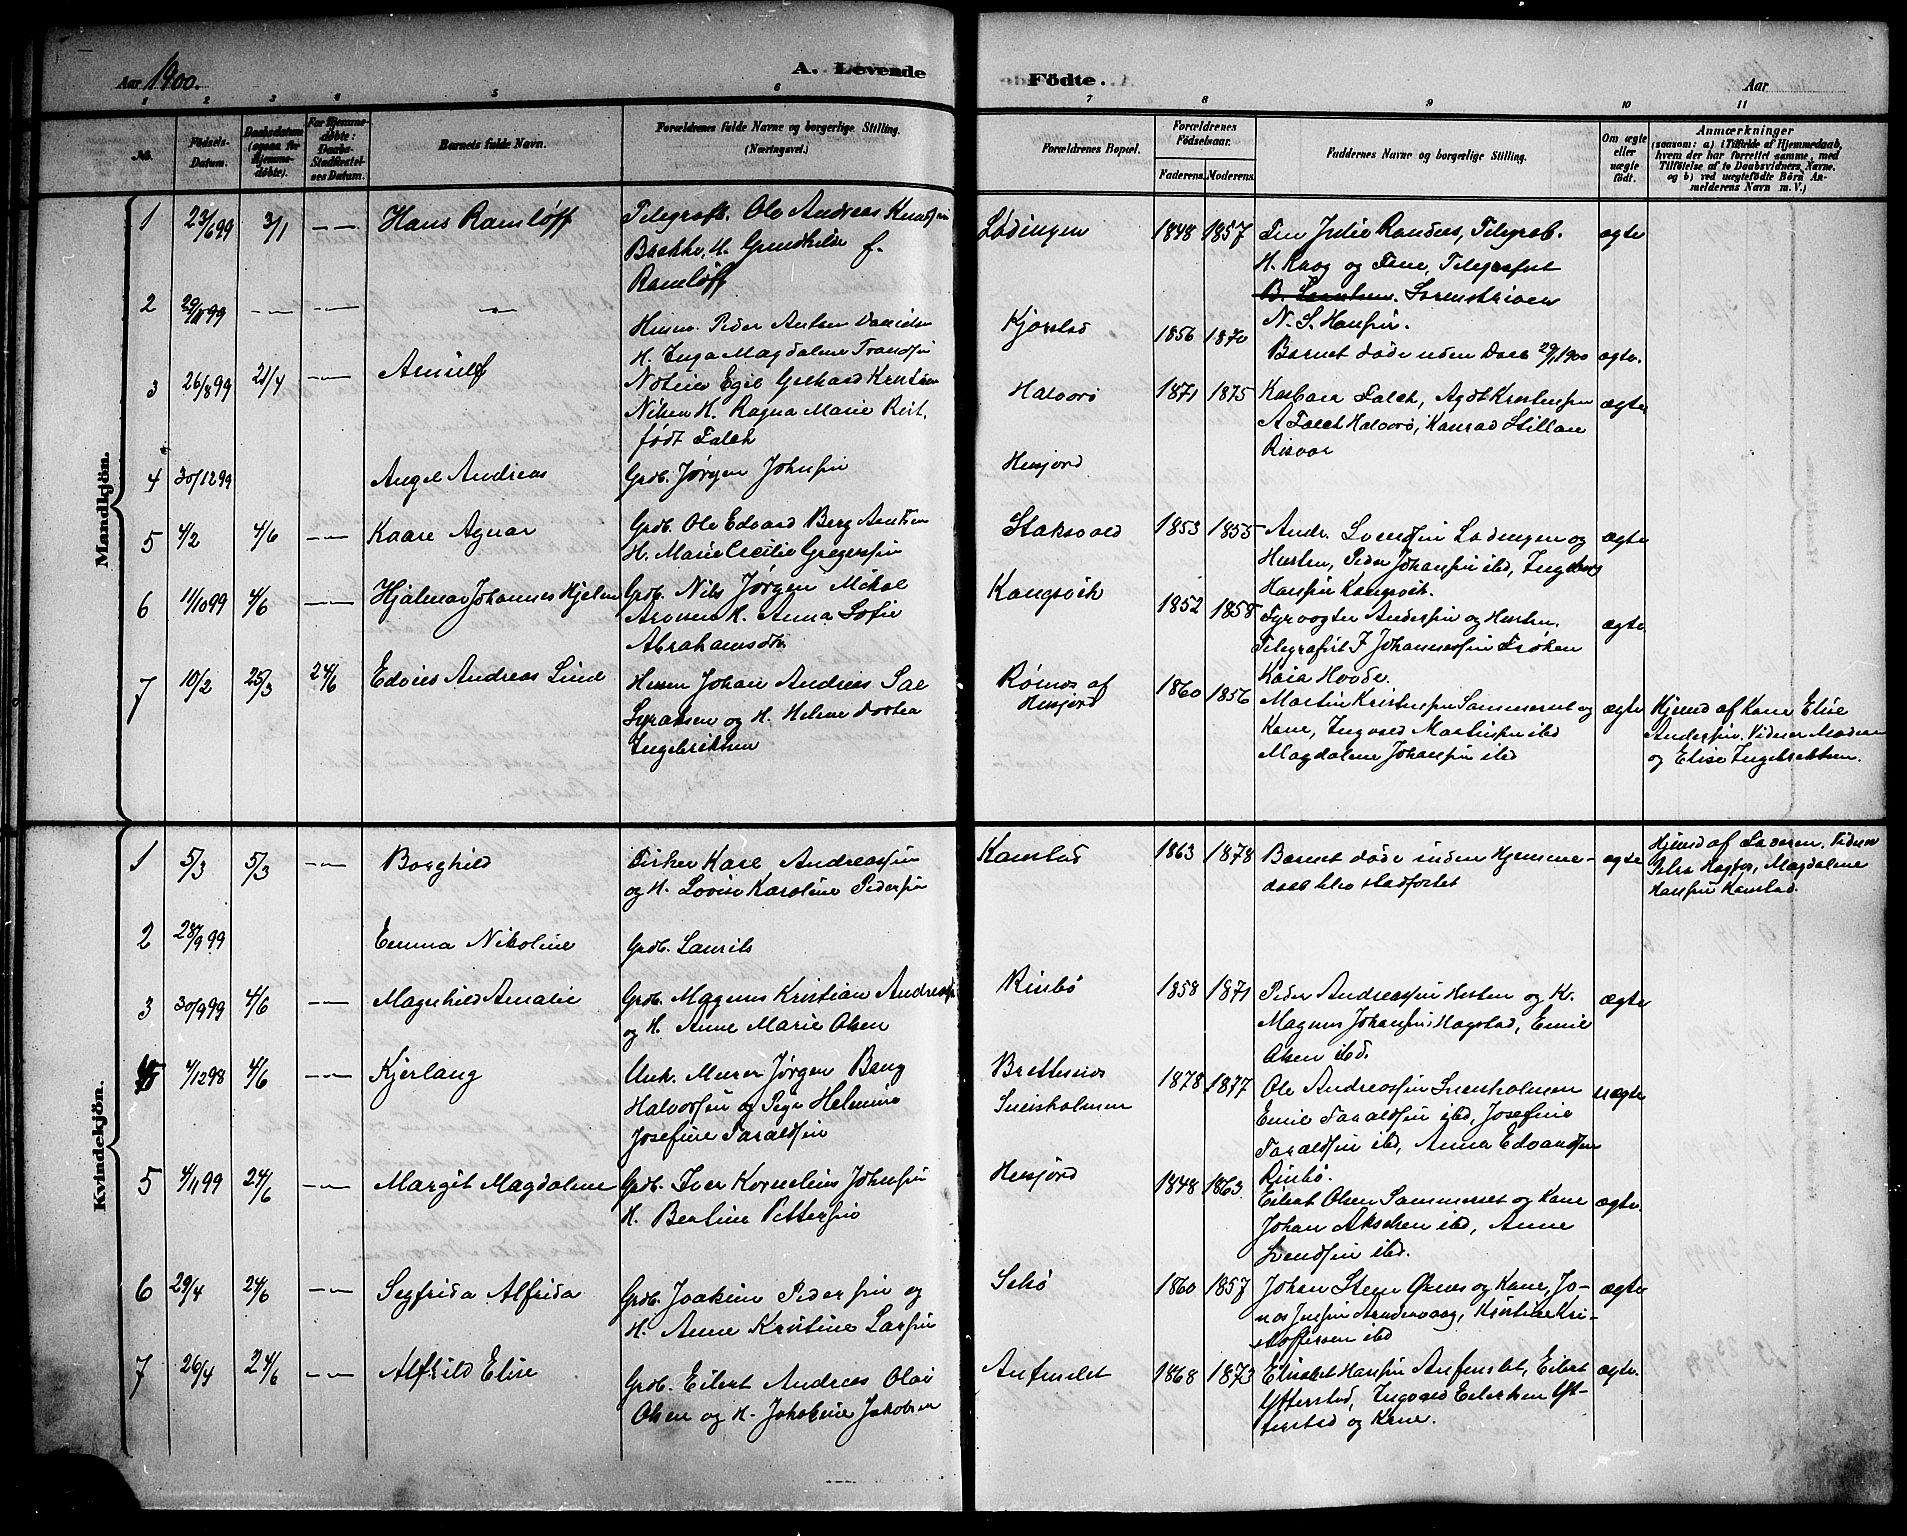 Aar 1900.
A. Levende
Födte.
Aar
1 2 3 4 5 6 7 8 9 10 11
No.
Födsels-Datum.
Daabsdatum (ogsaa for Hjemme-döbte).
For Hjemme-döbte: Daabs-Stadfæstel-ses Datum.
Barnets fulde Navn.
Forældrenes fulde Navne og borgerlige Stilling.
(Næringsvei.)
Forældrenes Bopæl.
Forældrenes Födselsaar.
Faderens. Moderens.
Faddernes Navne og borgerlige Stilling.
Om ægte eller uægte födt.
Anmærkninger
(saasom: a) i Tilfælde af Hjemmedaab,
hvem der har forrettet samme, med
Tilföielse af to Daabsvidners Navne,
og b) ved uægtefödte Börn An-
melderens Navn m. V.)
Mandkjön.
1 23/6 99 3/1 — Hans Ramløff
Telegrafb. Ole Andreas Knudsen
Bakke, H. Gundhilde f.
Ramløff
Lødingen 1848 1857
Fru Julie Randers, Telegrab.
H. Kaag og Frue, Telegrafist
Sorenskriver
N. S. Hansen.
ægte
2 29/11 99 — — —
Husm. Peder Anton Danielsen
H. Inga Magdalene Trondsen
Kjørstad 1856 1870
Barnet døde uden Daab 29/1 1900 ægte.
3 26/8 99 21/4 — Arnulf
Noteier Egil Gerhard Kristian
Nilsen H. Ragna Marie Beit,
født Falch
Halvorø 1871 1875
Barbara Falch, Agdt Kristensen
A Falch Halvorø, Konrad
Risvær
ægte
4 30/12 99 Angel Andreas
Grdb. Jørgen Johnsen
Husjord
5 4/2 4/6 — Kaare Agnar
Grdb. Ole Edvard Berg Arntsen
H. Marie Cecilie Gregersen
Staksvold 1853 1855
Andr. Svendsen Lødingen og
Hustru, Peder Johansen ibd, Ingeborg
Hansen Kongsvik.
ægte
6 11/10 99 4/6 — Hjalmar Johannes Hjelm
Grdb. Nils Jørgen Mikal
Aronsen H. Anna Sofie
Abrahamsdtr
Kongsvik 1852 1858
Fyrvogter Andersen og Hustru,
Telegrafist F Johannessen Frøken
Kaia Hovde.
ægte
7 10/2 25/3 24/6 Edvies Andreas Lind
Husm Johan Andreas
og H. Helene Dortea
Ingebriktsen
Rømnes af
Husjord
1860 1856
Martin Kristensen Sommerset og
Kone, Ingvald Martinsen ibd
Magdalene Johansen ibd
ægte
Hjemd af Kone Elise
Andersen. Vidner Moderen
og Elise Ingebrektsen.
Kvindekjön.
1 5/3 5/3 — Borghild
Fisker Kare Andreassen
og H. Lovise Karoline Pedersen
Kanstad 1863 1878
Barnet døde inden Hjemme-
daab blev stadfæstet
ægte
Hjemd af Faderen, Vidner
Petra Hagtor, Magdalene
Hansen Kanstad.
2 28/9 99 Emma Nikoline
Grdb. Laurits
3 30/9 99 4/6 — Magnhild Amalie
Grdb. Magnus Kristian Andreassen
og H. Anne Marie Olsen
Rinbø 1858 1871
Peder Andreassen Hesten og K.
Magnus Johansen Hagstad, Emil
Olsen ibd.
ægte
4 4/12 98 4/6 — Kjerlaug
Unk. Murer Jørgen Berg
Halvorsen og Pige Helmine
Josefine Taraldsen
Brettesnes
Svensholmen
1878 1877
Ole Andreassen Svenholmen
Emil Taraldsen ibd, Josefine
Taraldsen ibd, Anna Edvardsen
Rinbø.
uægte
5 4/11 99 24/6 — Margit Magdalene
Grdb. Iver Kornelius Johnsen
H. Berline Pettersen
Husjord 1848 1863
Eilert Olsen Sommerset og Kone
Johan Akselsen ibd, Anne
Svendsen ibd.
ægte
6 29/4 24/6 — Segfrida Alfrida
Grdb. Joakim Pedersen og
H. Anne Kristine Larsen
Selsø 1860 1857
Johan Steen Ørnes og Kone, Jo-
nas Jensen, Kristine Kri-
stoffersen ibd
ægte
7 26/4 24/6 — Alfhild Elise
Grdb. Eilert Andreas Olai
Olsen og H. Jakobine Jakobsen
Anfinslet 1868 1873
Elisabet Hansen Anfinslet, Eilert
Ytterstad, Ingvald Eilertsen Yt-
terstad og Kone.
ægte.